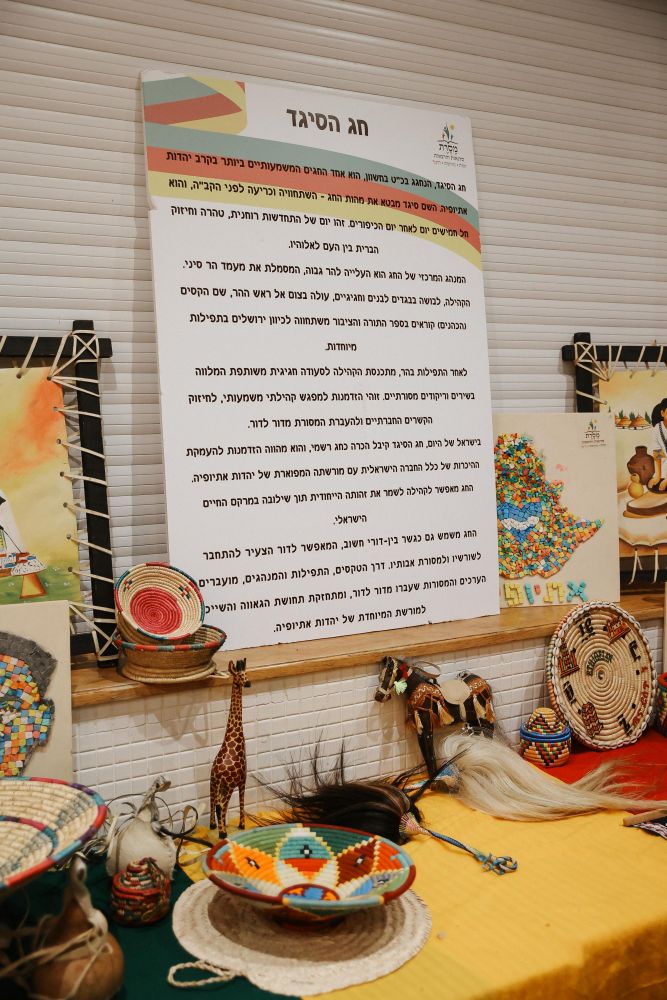 חג הסיגד
מסרת
חג הסיגד, הנחגג בכ"ט בחשוון, הוא אחד החגים המשמעותיים ביותר בקרב יהדות
אתיופיה. השם סיגד מבטא את מהות החג - השתחוויה וכריעה לפני הקב"ה, והוא
חל חמישים יום לאחר יום הכיפורים. זהו יום של התחדשות רוחנית, טהרה וחיזוק
הברית בין העם לאלוהיו.
המנהג המרכזי של החג הוא העלייה להר גבוה, המסמלת את מעמד הר סיני.
הקהילה, לבושה בבגדים לבנים וחגיגיים, עולה בצום אל ראש ההר, שם הקסים
(הכהנים) קוראים בספר התורה והציבור משתחווה לכיוון ירושלים בתפילות
מיוחדות.
לאחר התפילות בהר, מתכנסת הקהילה לסעודה חגיגית משותפת המלווה
בשירים וריקודים מסורתיים. זוהי הזדמנות למפגש קהילתי משמעותי, לחיזוק
הקשרים החברתיים ולהעברת המסורת מדור לדור.
בישראל של היום, חג הסיגד קיבל הכרה כחג רשמי, והוא מהווה הזדמנות להעמקת
ההיכרות של כלל החברה הישראלית עם מורשתה המפוארת של יהדות אתיופיה.
החג מאפשר לקהילה לשמר את זהותה הייחודית תוך שילובה במרקם החיים
הישראלי.
החג משמש גם כגשר בין-דורי חשוב, המאפשר לדור הצעיר להתחבר
לשורשיו ולמסורת אבותיו. דרך הטקסים, התפילות והמנהגים, מועברים
הערכים והמסורות שעברו מדור לדור, ומתחזקת תחושת הגאווה והשייכ
למורשת המיוחדת של יהדות אתיופיה.